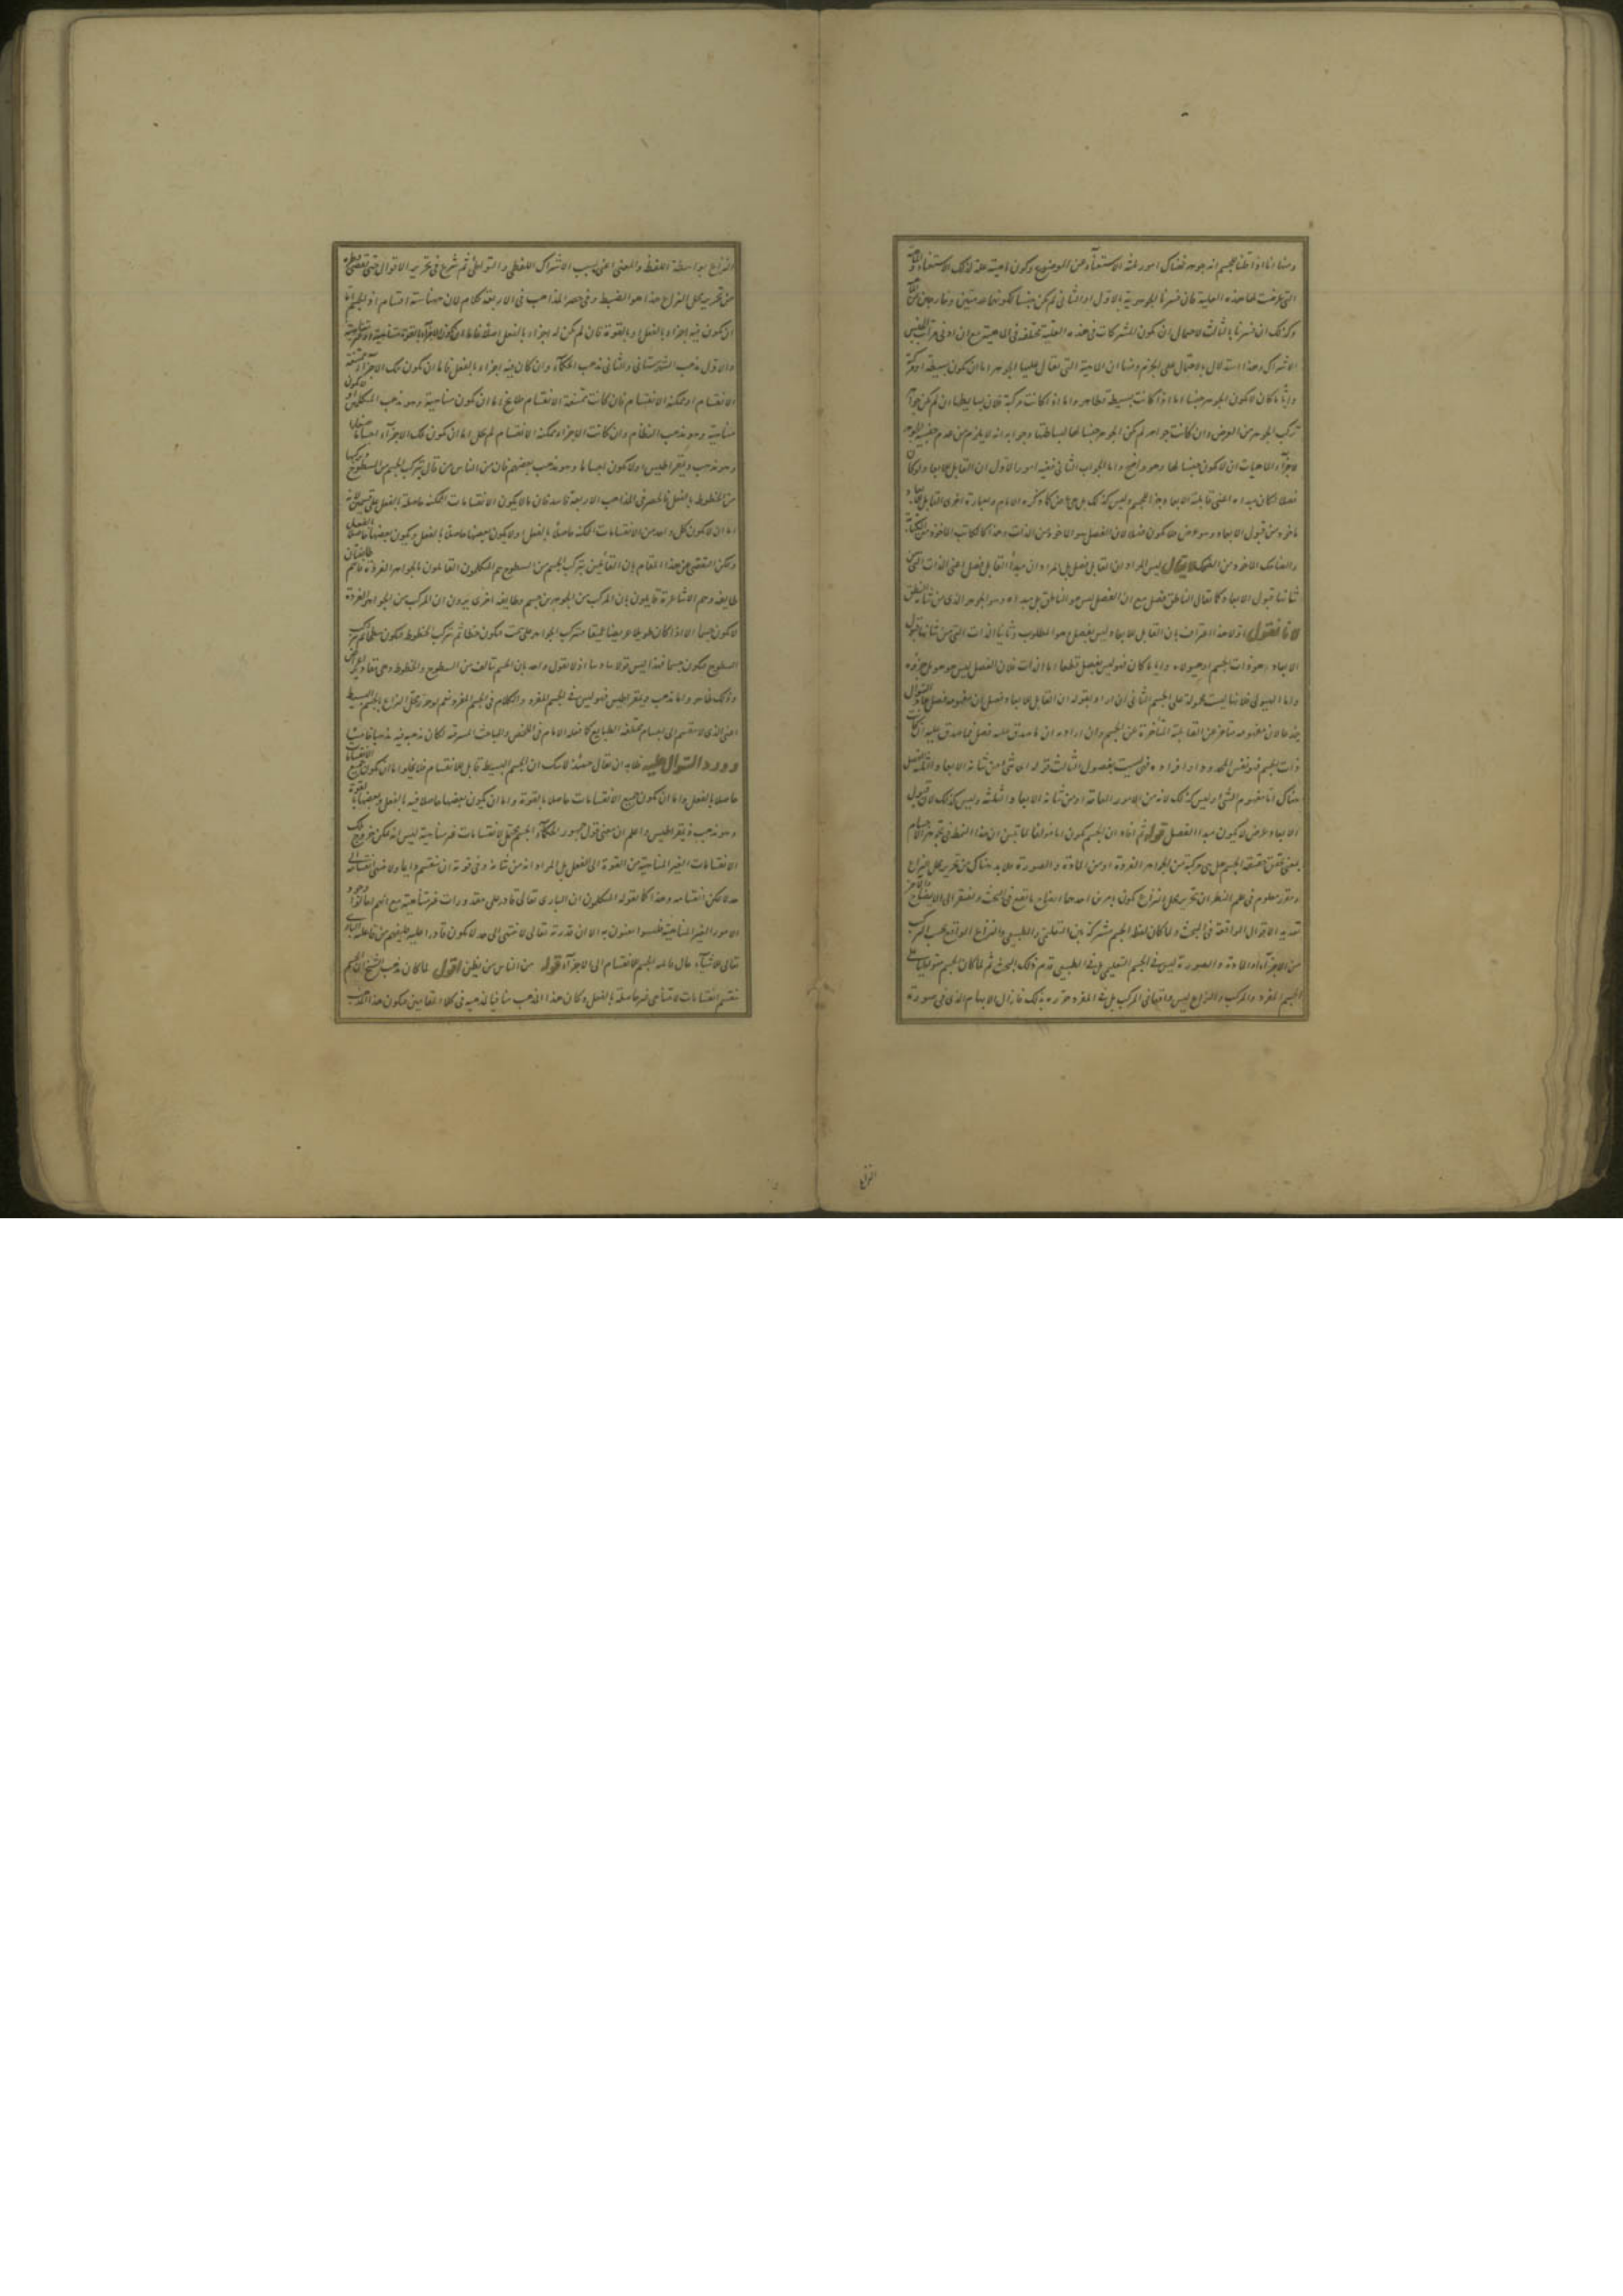 ومنها انا اذا قلنا للجسم انه جوهر فهناك امور ثلثة الاستغناء عن الموضوع وكون الماهية علة لذلك الاستغناء
التى عرضت لها هذه العلية فان فسرنا الجوهرية بالاول او الثانى لم يكن جنسا لكونهما عدميتين وخارجين
وكذلك ان فسرنا بالثالث لاحتمال ان يكون المشتركات فى هذه العلية مختلفة فى الماهية مع ان ادنى مراتب الجنس
الاشتراك وهذا استدلال بالاحتمال على الجزم ومنها ان الماهية التى يقال عليها الجوهر اما ان يكون بسيطة او مركبة
وايا ما كان لا يكون الجوهر جنسا اما اذا كانت بسيطة فظاهر واما اذا كانت مركبة فلان بسايطها ان لم يكن جواهر
تركب الجوهر من العرض وان كانت جواهر لم يكن الجوهر جنسا لها لبساطتها وجوابه انه لا يلزم من عدم جنسية الجوهر
لاجزاء الماهيات ان لا يكون جنسا لها وهو واضح واما الجواب الثانى ففيه امور الاول ان القابل للابعاد لو كان
فصلا لكان مبدأه اعنى قابلية الابعاد جزء الجسم وليس كذلك بل هى عرض كما ذكره الامام وبعبارة اخرى القابل للابعاد
ماخوذ من قبول الابعاد وهو عرض فلا يكون فصلا لان الفصل هو الماخوذ من الذات وهذا كالكاتب الماخوذ من الكتابة
والضاحك الماخوذ من الضحك لا يقال ليس المراد ان القابل فصل بل المراد ان مبدأ القابل فصل اعنى الذات التى من
شانها قبول الابعاد كما يقال الناطق فصل مع ان الفصل ليس هو الناطق بل مبدأه وهو الجوهر الذى من شانه النطق
لانا نقول اولا هذا اعتراف بان القابل للابعاد ليس بفصل وهو المطلوب وثانيا الذات التى من شانها قبول
الابعاد هو ذات الجسم او هيولاه وايا ما كان فهو ليس بفصل قطعا اما الذات فلان الفصل ليس هو هو بل جزؤه
واما الهيولى فلانها ليست محمولة على الجسم الثانى ان اراد بقوله ان القابل للابعاد فصل ان مفهومه فصل عاد السؤال
جذعا لان مفهومه متاخر عن القابلية المتأخرة عن الجسم وان اراد به ان ما صدق عليه فصل فما صدق عليه ان كان
ذات الجسم فهو نفس المحدود او افراده فهى ليست بفصول الثالث قوله اى شئ من شانه الابعاد الثلثة
هناك اما مفهوم الشئ وليس كذلك لانه من الامور العامة او من شانه الابعاد الثلثة وليس كذلك لان قبول
الابعاد عرض لا يكون مبدأ الفصل قوله ثم افاد ان الجسم يكون اما مؤلفا لما تبين ان هذا النمط فى تجوهر الاجسام
يعنى تحقق حقيقة الجسم هل هى مركبة من الجواهر الفردة او من المادة والصورة فلا بد هناك من تحرير محل النزاع
ومقرر معلوم فى علم النظر ان تحرير محل النزاع يكون بامرين احدهما ايضاح ما يقع فى البحث ويفتقر الى الايضاح
تعديد الاقوال الواقعة فى البحث ولما كان لفظ الجسم مشتركة بين التعليمى والطبيعى والنزاع الواقع بحسب التركب
من الاجزاء او المادة والصورة ليس فى الجسم التعليمى بل فى الطبيعى قدم ذلك البحث ثم لما كان الجسم مقولا على
الجسم المفرد والمركب والنزاع ليس واقعا فى المركب بل فى المفرد حرره بذلك فازال الابهام الذى فى صورة
النزاع
النزاع بواسطة اللفظ والمعنى اعنى بسبب الاشتراك اللفظى والتواطئ ثم شرع فى تحرير الاقوال حتى
من تحرير محل النزاع هذا هو الضبط وفى حصر المذاهب فى الاربعة كلام لان ههنا ستة اقسام اذ الجسم اما
ان يكون فيه اجزاء بالفعل او بالقوة فان لم يكن له اجزاء بالفعل اصلا فاما ان يكون الاجزاء بالقوة متناهية او غير متناهية
والاول مذهب الشهرستانى والثانى مذهب الحكماء وان كان فيه اجزاء بالفعل فاما ان يكون تلك الاجزاء ممتنعة
الانقسام او ممكنة الانقسام فان كانت ممتنعة الانقسام فلا يخ اما ان يكون متناهية وهو مذهب المتكلمين او لا يكون
متناهية وهو مذهب النظام وان كانت الاجزاء ممكنة الانقسام لم يخل اما ان يكون تلك الاجزاء اجساما
وهو مذهب ذيمقراطيس او لا يكون اجساما وهو مذهب بعضهم فان من الناس من قال بتركب الجسم من السطوح
من الخطوط بالفعل فالحصر فى المذاهب الاربعة فاسد فان ما لا يكون الانقسامات الممكنة حاصلة بالفعل على قسمين لانه
اما ان لا يكون كل واحد من الانقسامات الممكنة حاصلا بالفعل او لا يكون بعضها حاصلا بالفعل ويكون بعضها حاصلا بالفعل
ويمكن التفصى عن هذا المقام بان القائلين بتركب الجسم من السطوح هم المتكلمون القائلون بالجواهر الفردة فانهم طايفتان
طايفة وهم الاشاعرة قايلون بان المركب من الجوهرين جسم وطايفة اخرى يرون ان المركب من الجواهر الفردة
لا يكون جسما الا اذا كان طويلا عريضا عميقا فتركب الجواهر على سمت فيكون خطا ثم تركب الخطوط فيكون سطحا ثم تركب
السطوح فيكون جسما فهذا ليس قولا سادسا اذ لا يقول واحد بان الجسم تالف من السطوح والخطوط وهى مقادير اعراض
وذلك ظاهر واما مذهب ذيمقراطيس فهو ليس فى الجسم المفرد والكلام فى الجسم المفرد نعم لو حرر محل النزاع بالجسم البسيط
اعنى الذى لا ينقسم الى اجسام مختلفة الطبايع كما فعله الامام فى الملخص والمباحث المشرقية لكان مذهبه فيه مذهبا خامسا
وورود السؤال عليه فلا بد ان يقال حينئذ لا شك ان الجسم البسيط قابل للانقسام فلا يخلوا اما ان يكون جميع الانقسامات
حاصلا بالفعل واما ان يكون جميع الانقسامات حاصلا بالقوة واما ان يكون بعضها حاصلا فيه بالفعل وبعضها بالقوة
وهو مذهب ذيمقراطيس واعلم ان معنى قول جمهور الحكماء الجسم محتمل لانقسامات غير متناهية ليس انه يمكن خروج تلك
الانقسامات الغير المتناهية من القوة الى الفعل بل المراد انه من شانه وفى قوته ان ينقسم دايما ولا ينتهى انقسامه الى
حد لا يمكن انقسامه وهذا كما يقوله المتكلمون ان البارى تعالى قادر على مقدورات غير متناهية مع انهم احالوا وجود
الامور الغير المتناهية فليسوا يعنون به الا ان قدرته تعالى لا تنتهى الى حد لا يكون قادرا عليه
تعالى للاشياء حال قابلية الجسم للانقسام الى الاجزاء قوله من الناس من يظن اقول لما كان مذهب الشيخ ان الجسم
ينقسم انقسامات لا تتناهى غير حاصلة بالفعل وكان هذا المذهب منافيا لمذهبه فى كلا المقامين فيكون هذا المذهب